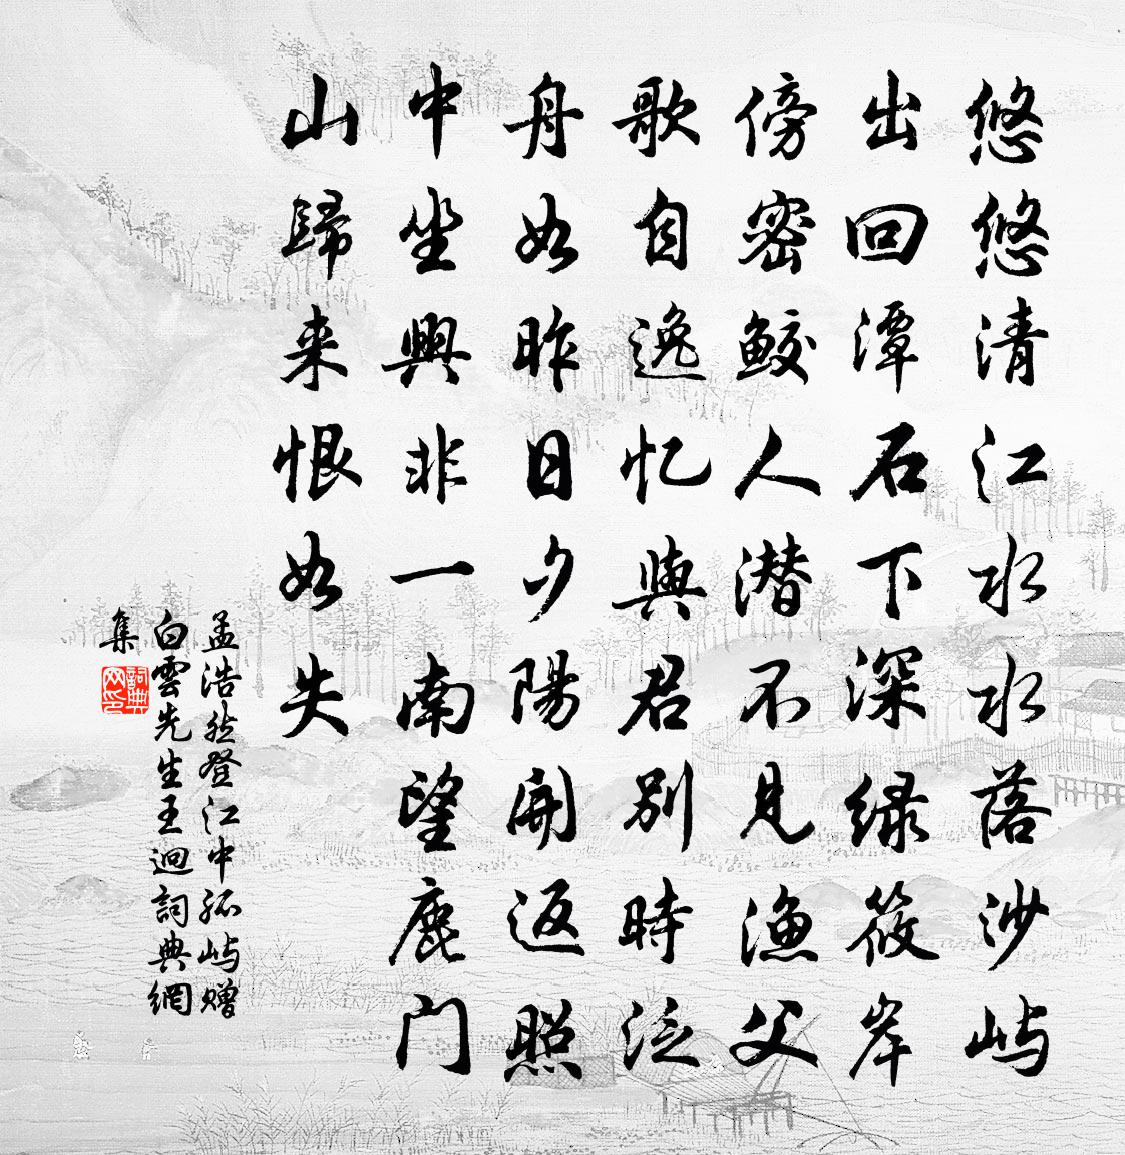 悠悠清江水水落沙屿
出回潭石下深绿筱岸
傍密鲛人潜不见渔父
歌自逸忆與君别時泛
舟如昨日夕陽開返照
中坐興非一南望鹿门
山歸来恨如失
孟浩然登江中孤屿赠
白雲先生王迥詞典網
集
詞典网印